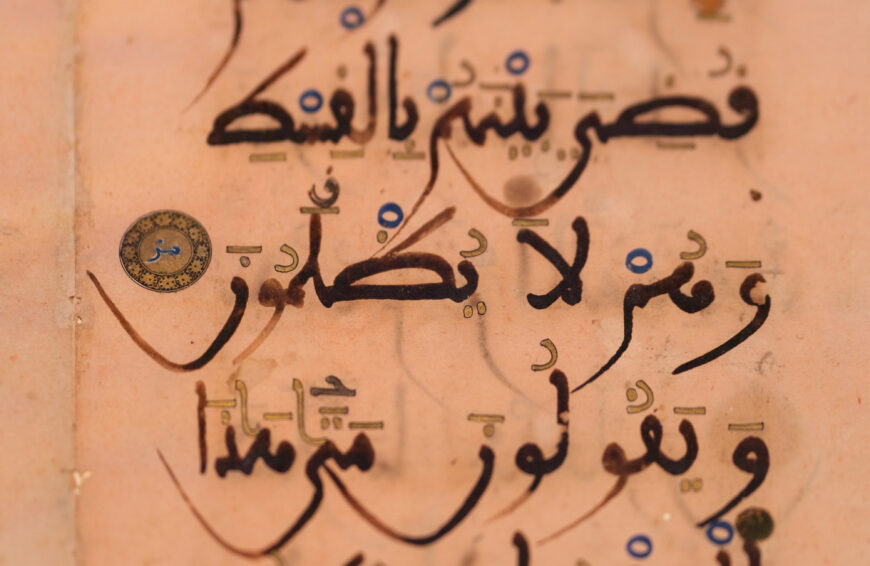 قُضِيَ بَيْنَهُمْ بِالْقِسْطِ
وَهُمْ لَا يُظْلَمُونَ مز
وَيَقُولُونَ مَتَىٰ هَٰذَا